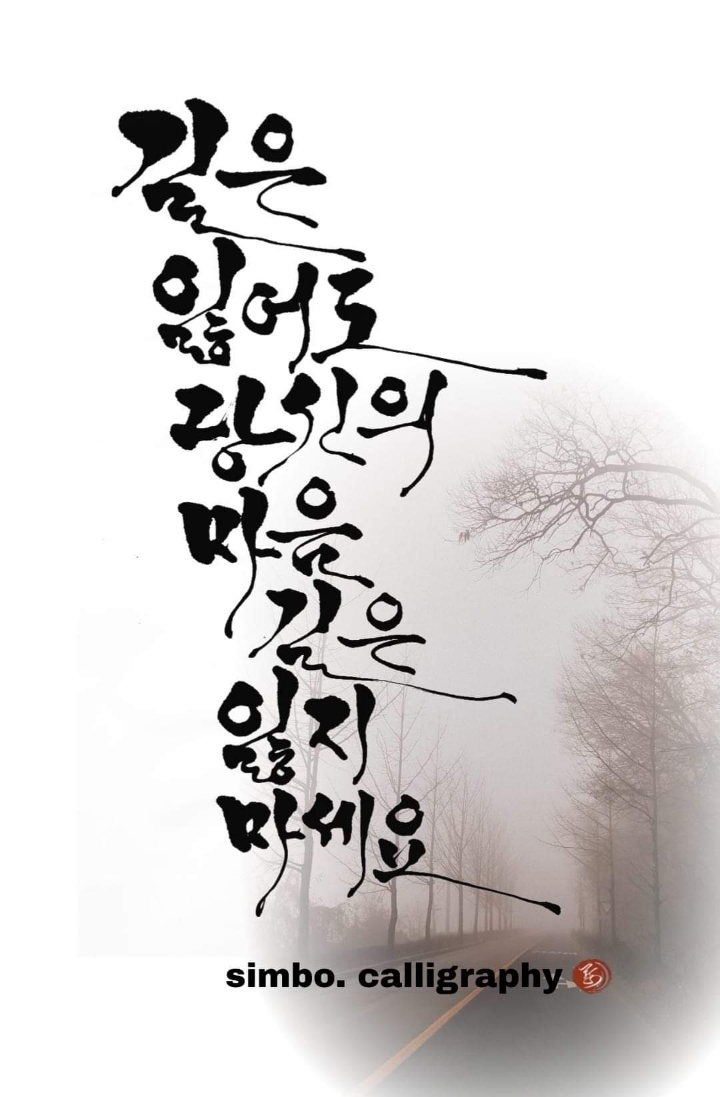 길은
잃어도
당신의
마음
길은
잃지
마세요
simbo. calligraphy